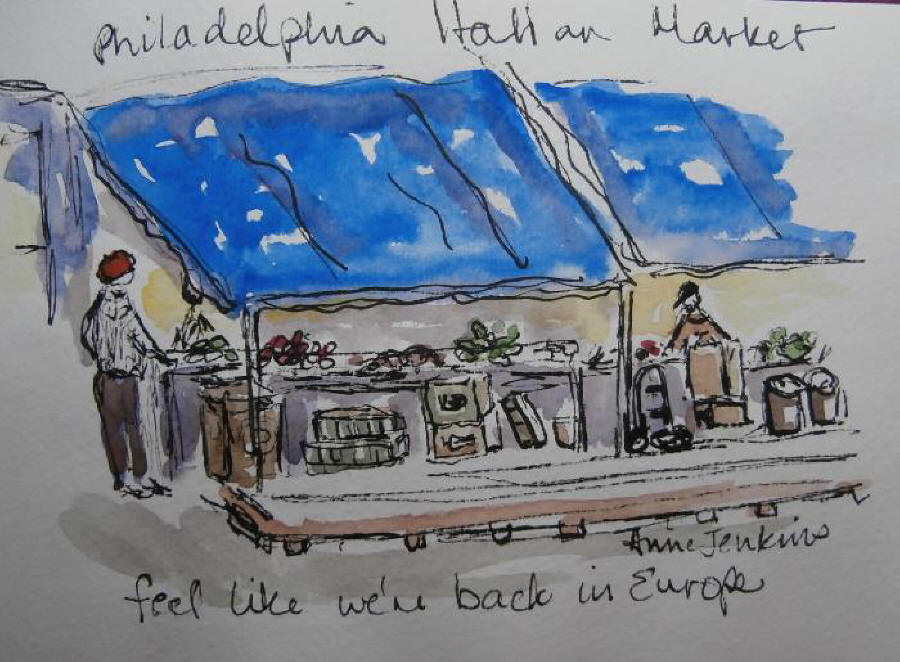 Philadelphia Italian Market
Anne Jenkins
feel like we're back in Europe